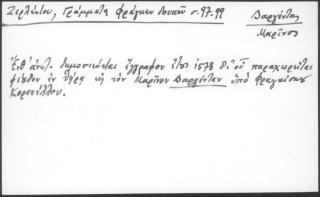 Ζερλέντου, Γράμματα Φράγκων Δουκῶν σ. 97-99
Δαργέντας
Μαρῖνος
Ἔνθ' ἀνωτ. δημοσιεύεται ἔγγραφον ἔτους 1578 δι' οὗ παραχωρεῖται
φέουδον ἐν Θήρᾳ εἰς τὸν Μαρῖνον Δαργένταν ὑπὸ Φραγκίσκου
Κορονέλλου.